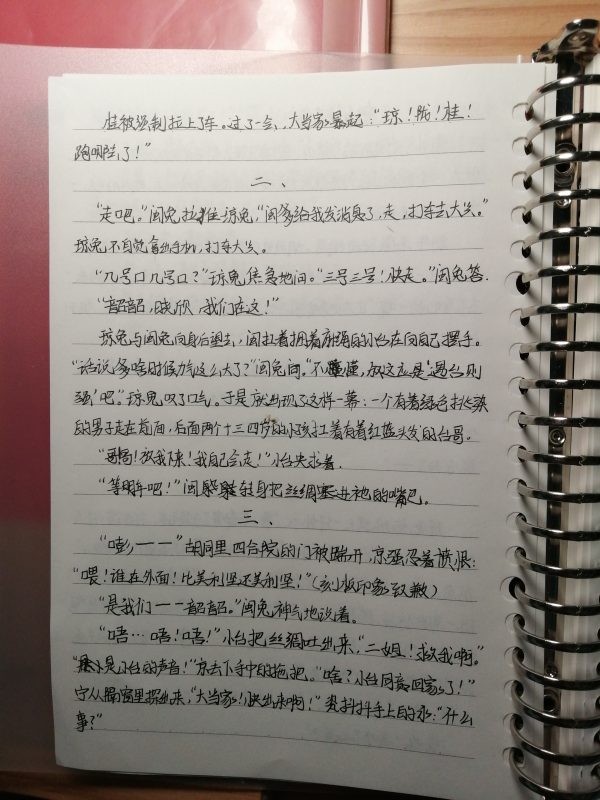 桂被强制拉上了车。过了一会,大当家暴起:“琼!陇!桂!
跑哪去了!”
二、
“走吧。”闽兔拉琼兔,“闽爹给我发消息了,走,打车去大公。”
琼兔不自觉拿出手机,打车大公。
“几号口几号口?”琼兔焦急地问。“三号三号!快走。”闽兔答.
“韶韶,晓欣,我们在这!”
琼兔与闽兔向身后望去,闽拉着捆着麻绳的小台在向自己摆手。
“话说爹啥时候力气这么大了?”闽兔问。“不懂,叔这应是‘遇台则
强’吧”琼兔叹了口气。于是就出现了这样一幕:一个有着绿毛挂染
的男子走在前面,后面两个十三四岁的小孩扛着有着红蓝头发的台哥。
“哥哥!放我下来!我自己会走!”小台央求着.
“等明年吧!”闽转身把丝绸塞进祂的嘴巴。
三、
“嘭一一”胡同里四合院的门被踹开,京强忍着愤恨:
“喂!谁在外面!比美利坚还美利坚!”(刻板印象致歉)
“是我们一一韶韶。”闽兔神气地说着。
“唔…唔!唔!”小台把丝绸吐出来,“二姐!救我啊。”
是小台的声音!”京丢下手中的拖把。“啥?小台同意回家了!”
宁从隔窗里探出来,“大当家!快出来啊!”冀抖抖手上的水:“什么
事?”